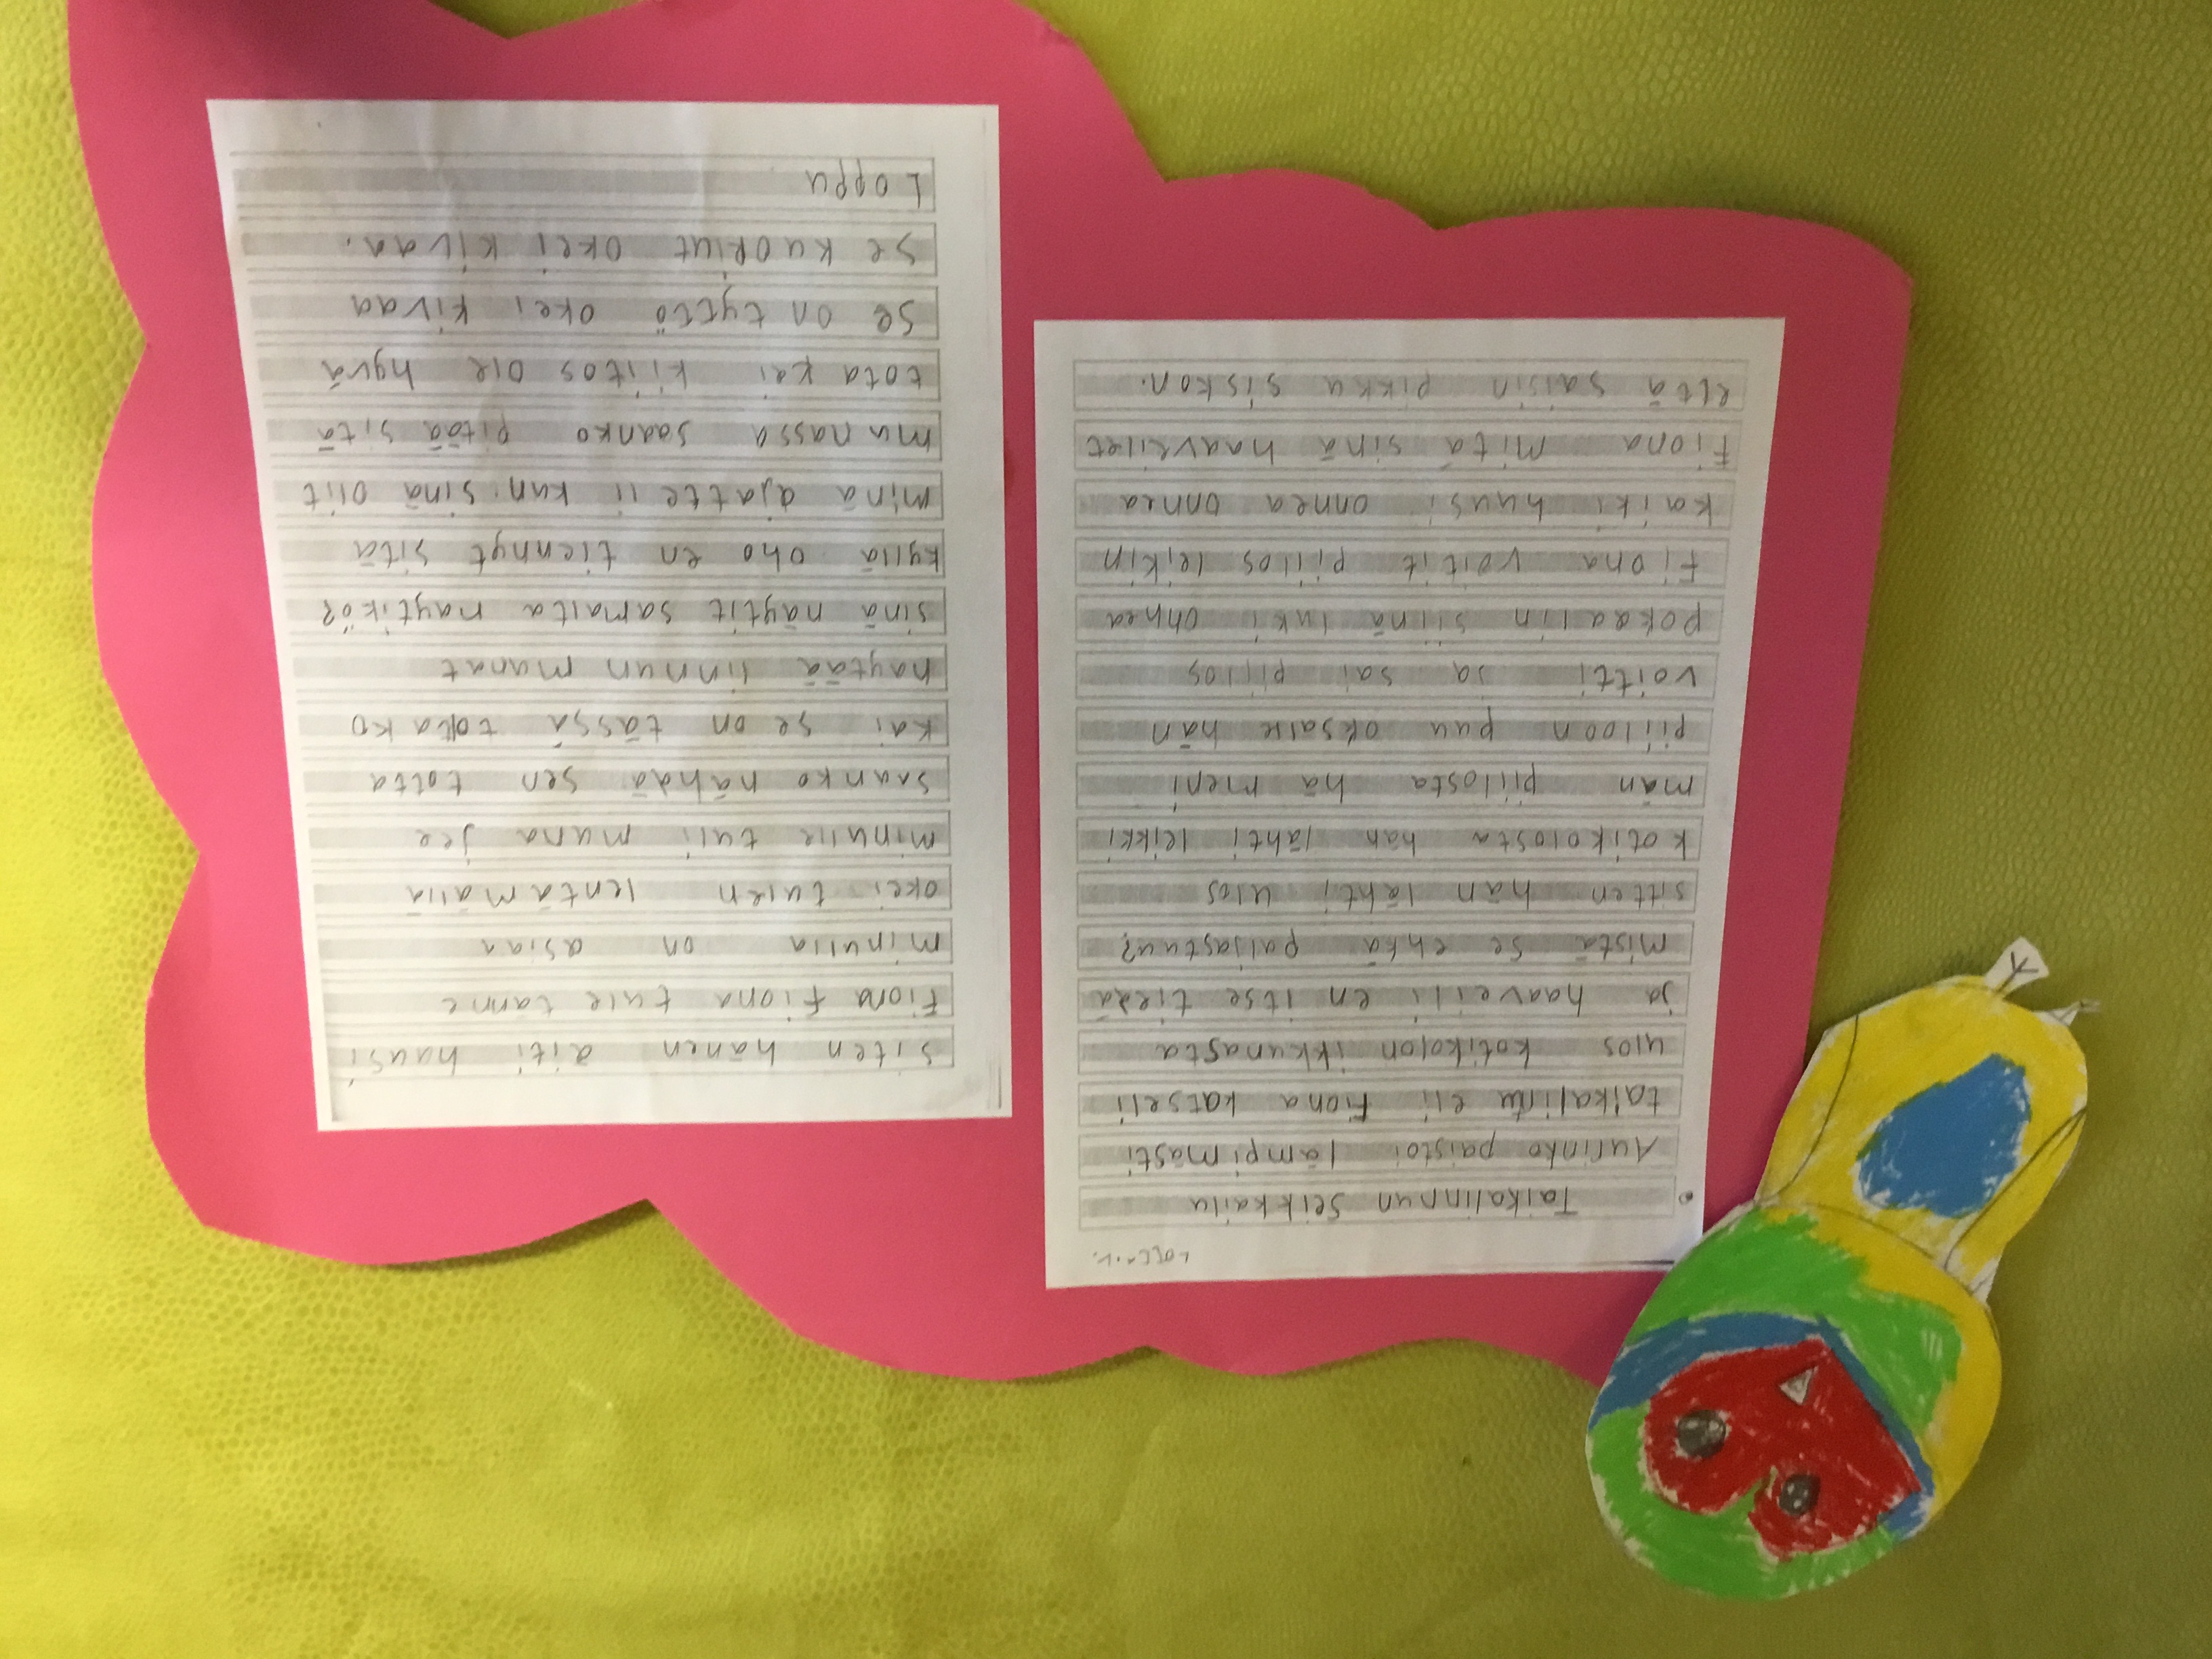 Taikalinnun Seikkailu
Aurinko paistoi lämpimästi
taikalintu eli Fiona katseli
ulos kotikolon ikkunasta
ja haaveili en itse tiedä
mistä se ehkä paljastuu?
sitten hän lähti ulos
kotikolosta hän lähti leikki
män piilosta hä meni
piiloon puu oksale hän
voitti ja sai piilos
pokaalin siinä luki onnea
Fiona voitit piilos leikin
kaiki huusi onnea onnea
Fiona mitä sinä haaveilet
että saisin pikku siskon.
siten hänen äiti hausi
Fiona Fiona tule tänne
minulla on asiaa
okei tulen lentämällä
minulle tuli muna jee
saanko nähdä sen totta
kai se on tässä totako
näytää linnun munat
sinä näytit samalta näytikö?
kyllä oho en tiennyt sitä
minä ajatteli kun sinä olit
munassa saanko pitää sitä
tota kai kiitos ole hyvä
se on tyttö okei kivaa
se kuoriut okei kivaa.
Loppu